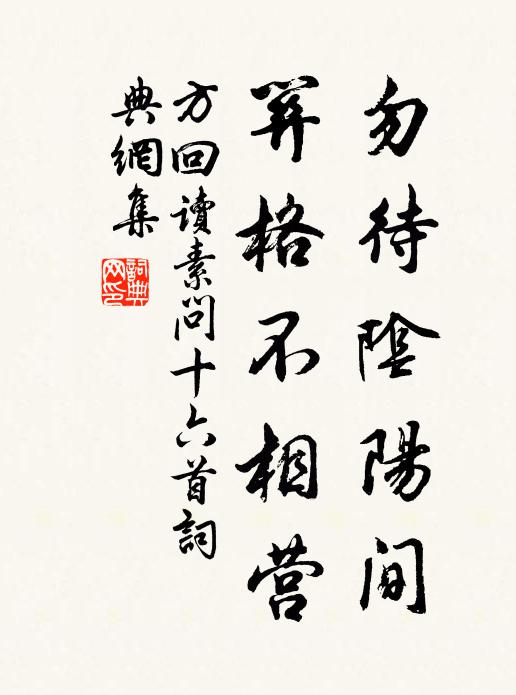 勿待陰陽間
关格不相营
方回讀素問十六首詞
典網集
詞典
网印